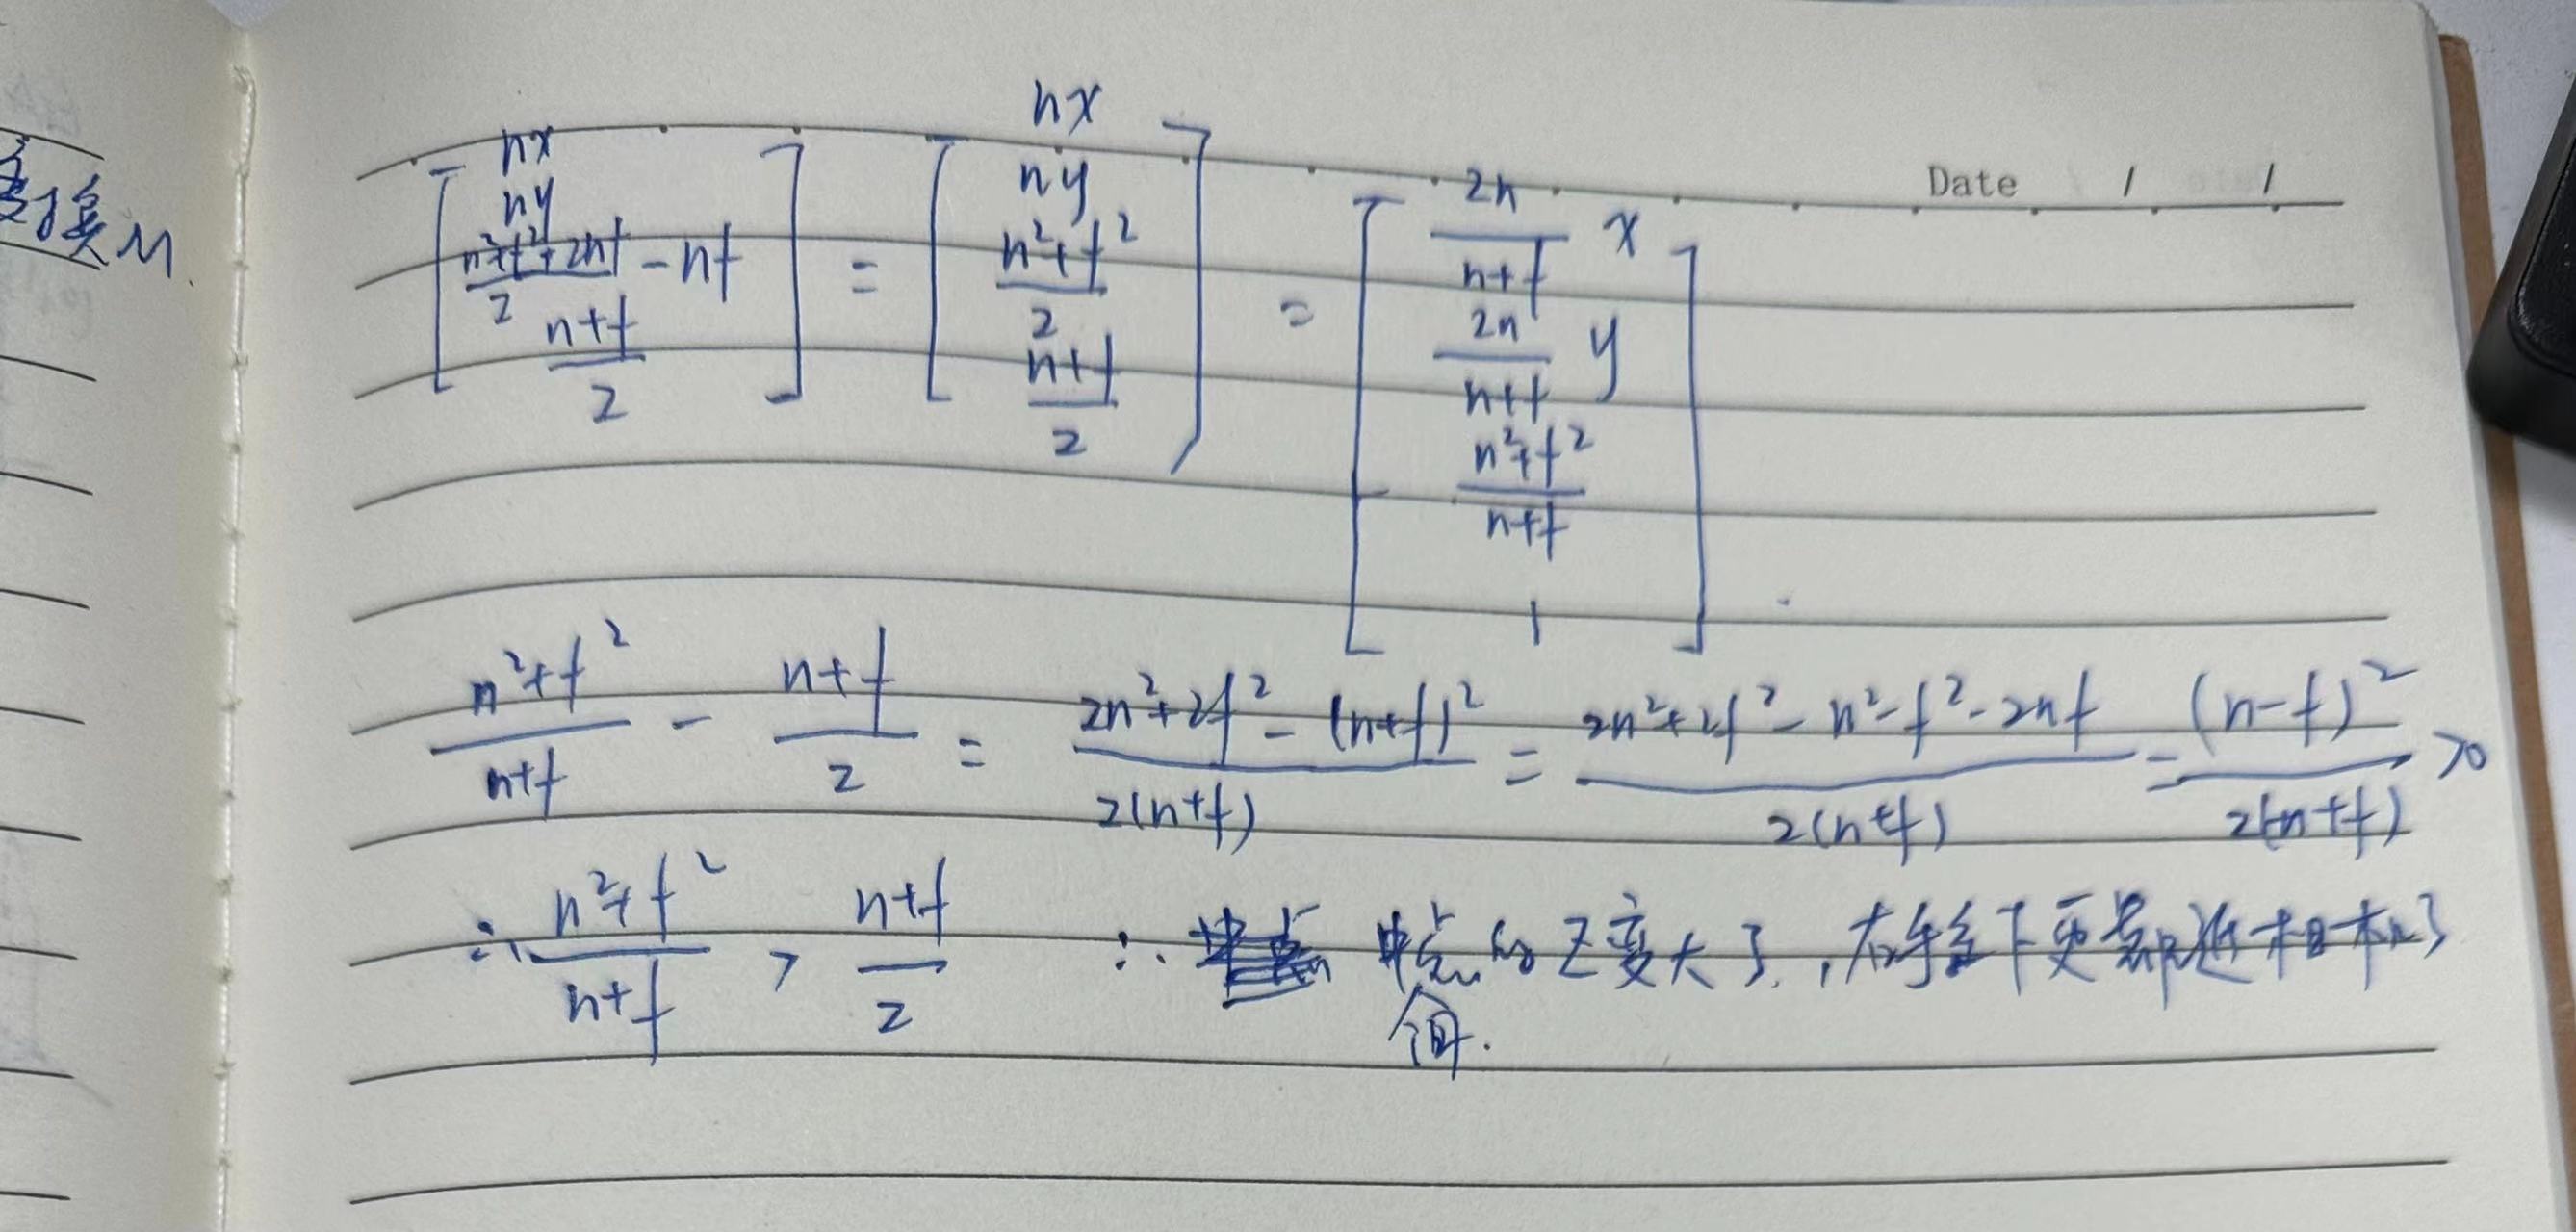 变换M.
Date / /
[nx, ny, (n²+f²+2nf)/2 - nf, (n+f)/2] = [nx, ny, (n²+f²)/2, (n+f)/2] = [2n/(n+f) x, 2n/(n+f) y, (n²+f²)/(n+f), 1]
(n²+f²)/(n+f) - (n+f)/2 = (2n²+2f² - (n+f)²)/(2(n+f)) = (2n²+2f² - n² - f² - 2nf)/(2(n+f)) = (n-f)²/(2(n+f)) >0
∴ (n²+f²)/(n+f) > (n+f)/2 ∴ 中点的Z变大了,右手系下更靠近相机了
间.